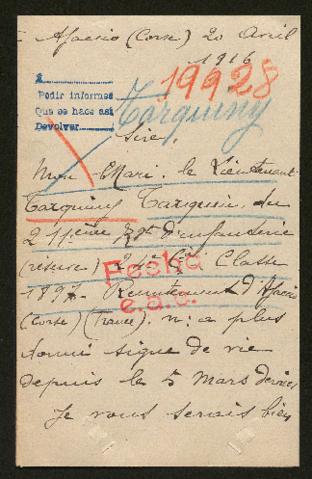 Ajaccio (Corse) 20 Avril
1916
19928
1
Pedir informes
Que se hace así
Devolver
Tarquiny
Sire,
Mon Mari, le Lieutenant
Tarquiny Tarquin, du
211ème Rgt d'infanterie
(réserve) Cie Classe
1897 Recrutement d'Ajaccio
Fecha
e.a.c.
(Corse) (France). n'a plus
donné signe de vie
depuis le 5 Mars dernier
Je vous serais bien